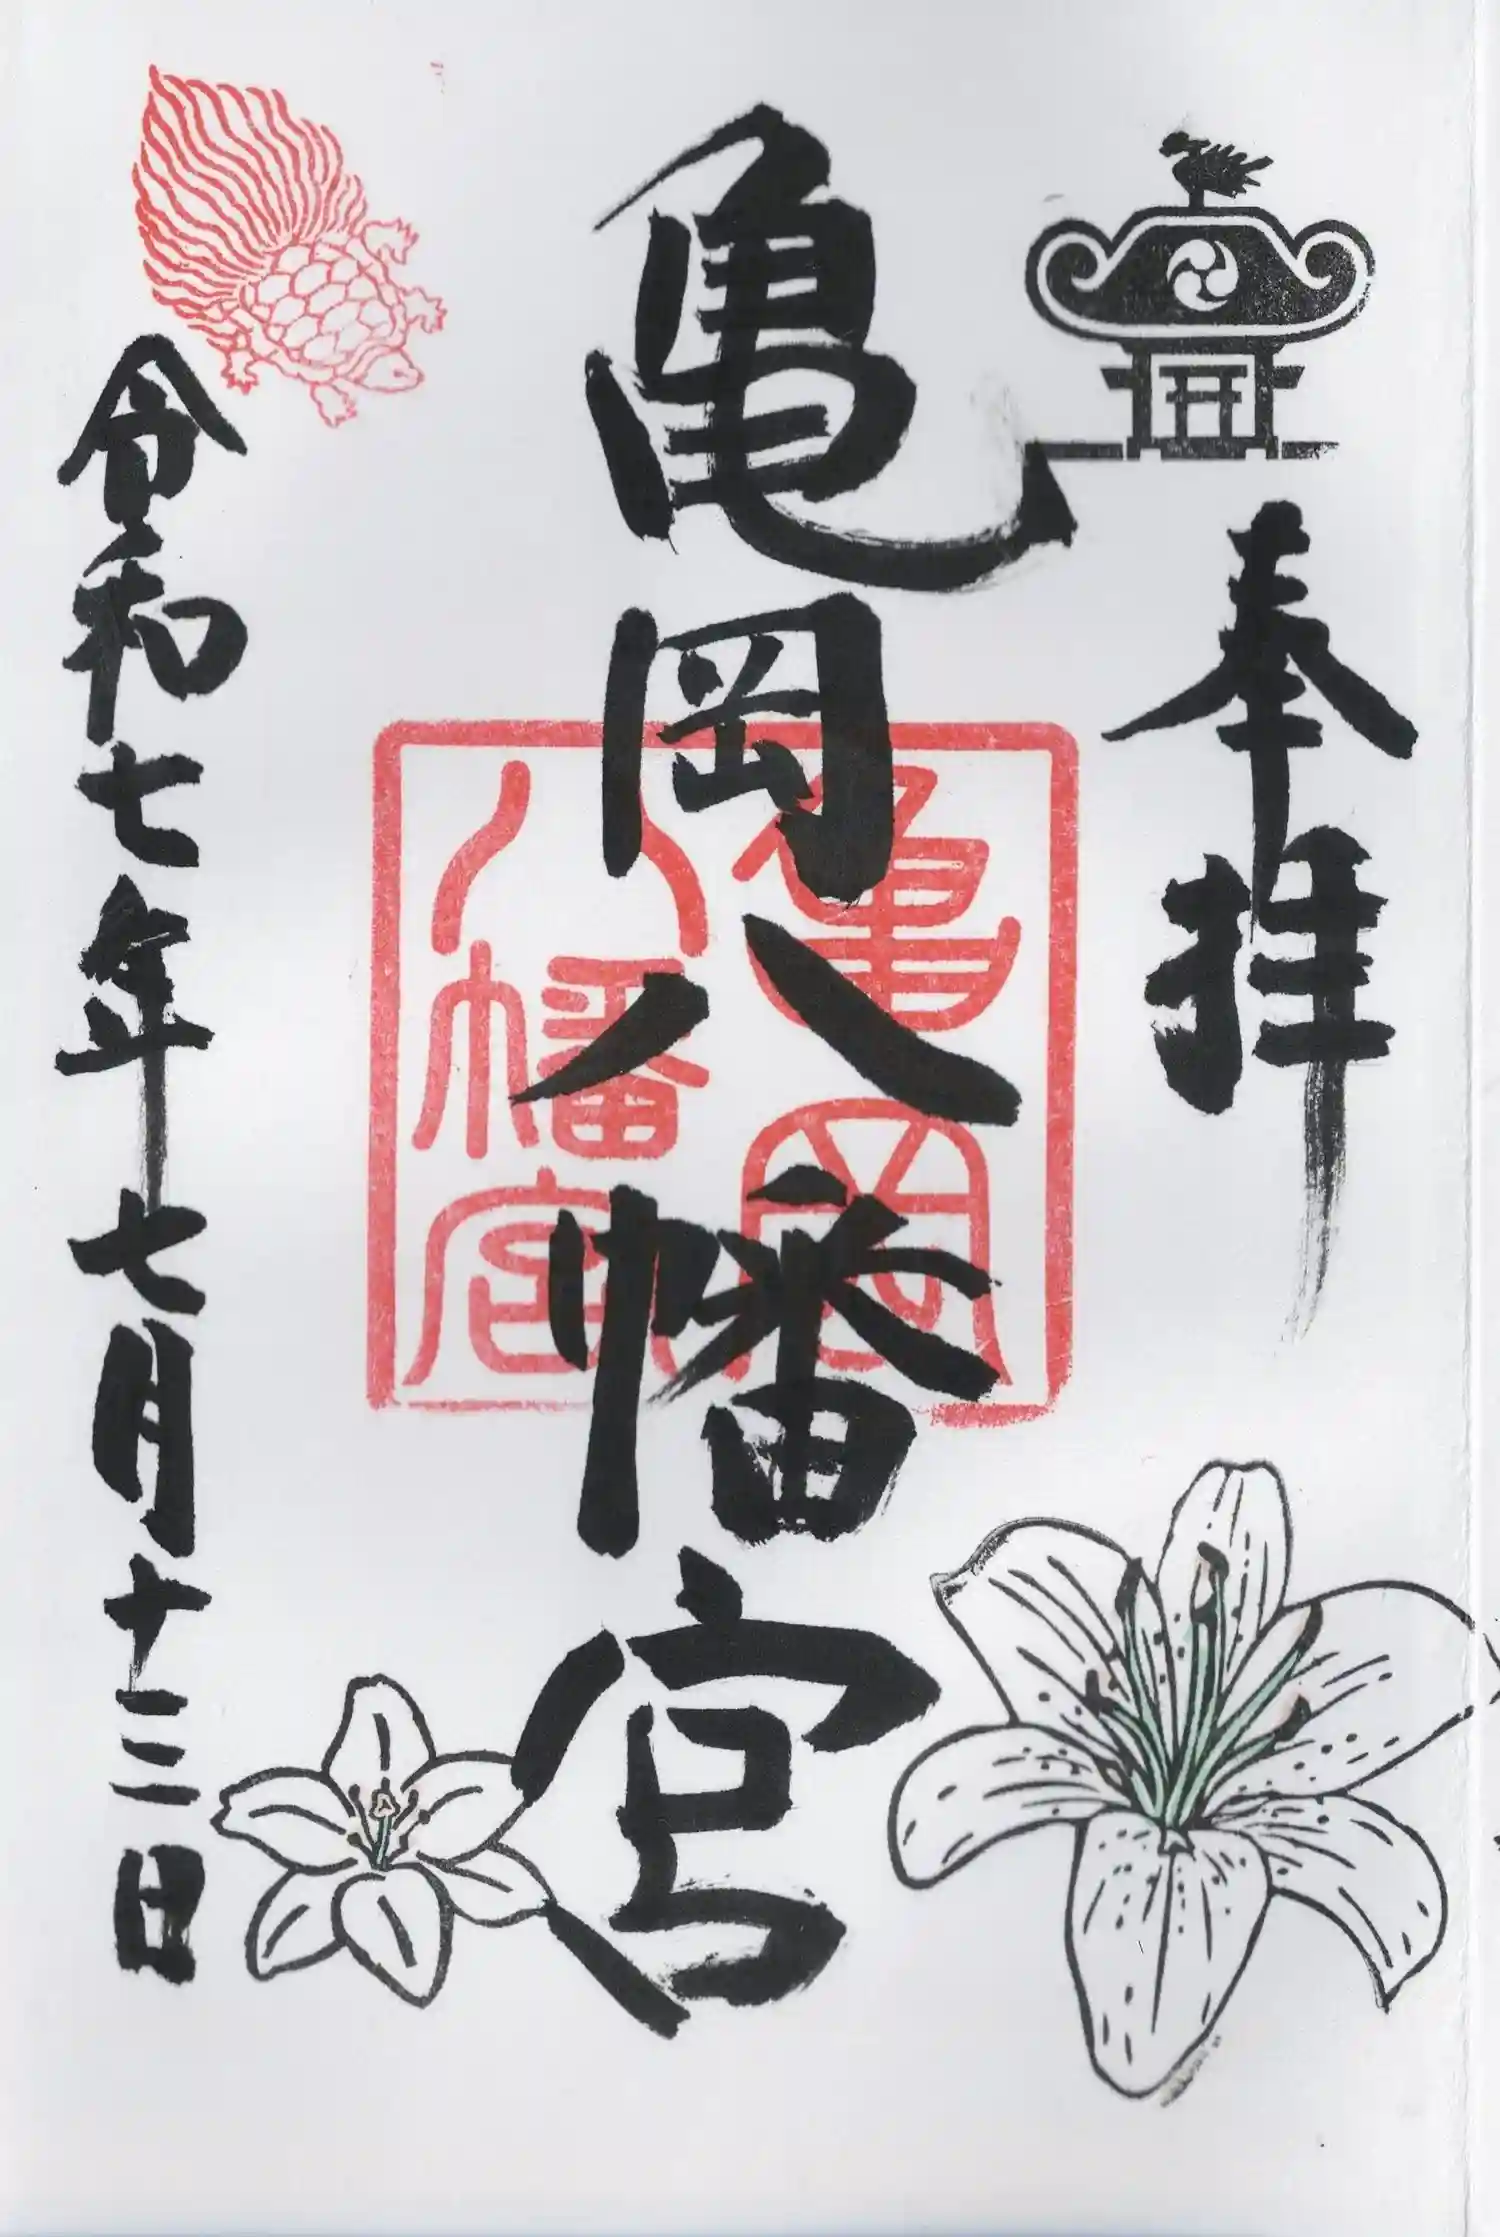 奉拝
亀岡八幡宮
亀岡
八幡宮
令和七年七月十二日